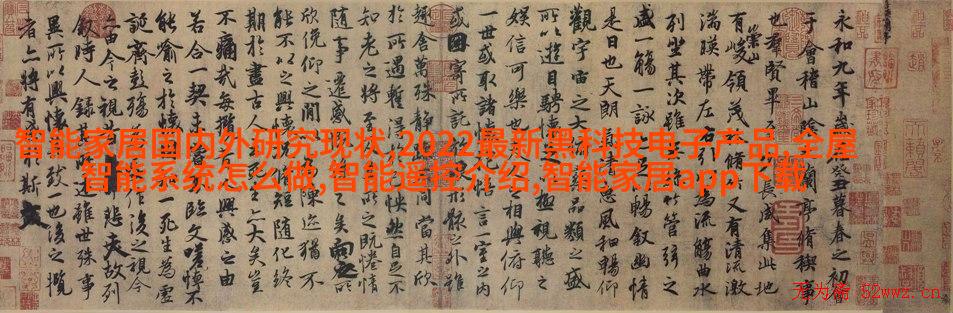 智能家居国内外研究现状,2022最新黑科技电子产品,全屋
智能系统怎么做,智能遥控介绍,智能家居app下载
永和九年癸丑暮春之初會
于會稽山陰蘭亭脩稧事
也羣賢畢長咸集此地
有崇山峻領茂脩又有清流激
湍暎帶左右引流觴曲水
列坐其次雖竹管弦之
盛一觴一詠足暢敘幽情
是日也天朗清惠風和暢仰
觀宇宙之大品類之盛
所以遊目騁懷極視聽之
娛信可樂也相與俯仰
一世或取諸悟言一室之內
或因寄所託形骸之外雖
趣舍萬殊靜同當其欣
於所遇蹔得怏然自足不
知老之將至所之既惓情
隨事遷感之矣向之所
欣俛仰之閒陳迹猶不
能不以之興脩短隨化終
期於盡古人死生大矣豈
不痛哉每攬人興感之由
若合一契未臨文嗟悼不
能喻之於懷一死生為虛
誕齊彭殤作後之視今
由今之視悲夫故列
敘時人錄其述雖世殊事
異所以興懷致一也後之攬
者將有斯文
天为斋 52wwz.cn